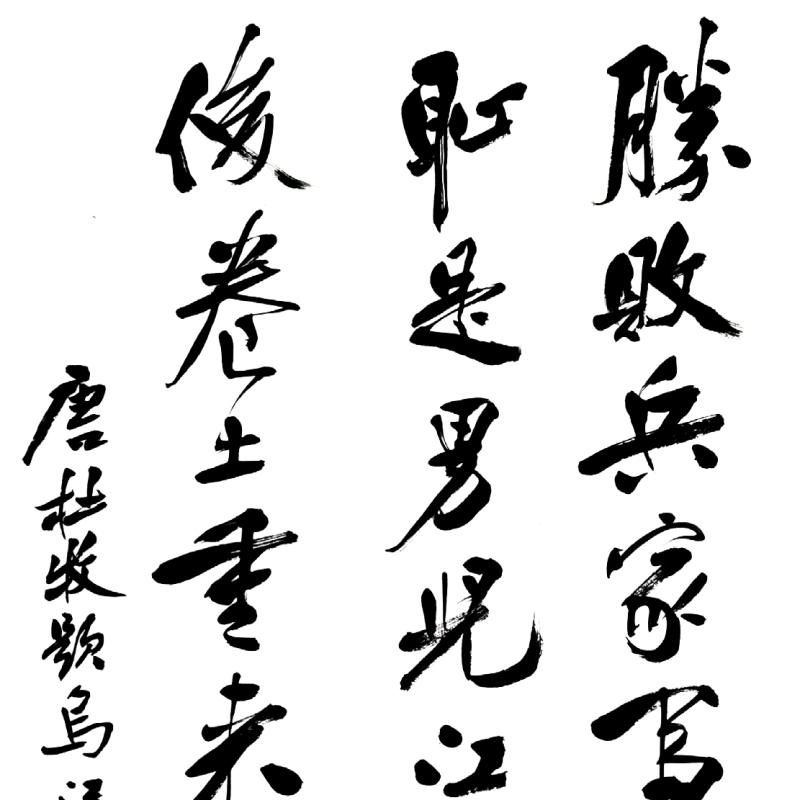 勝敗兵家
恥是男兒江
俊卷土重来
唐杜牧題烏江